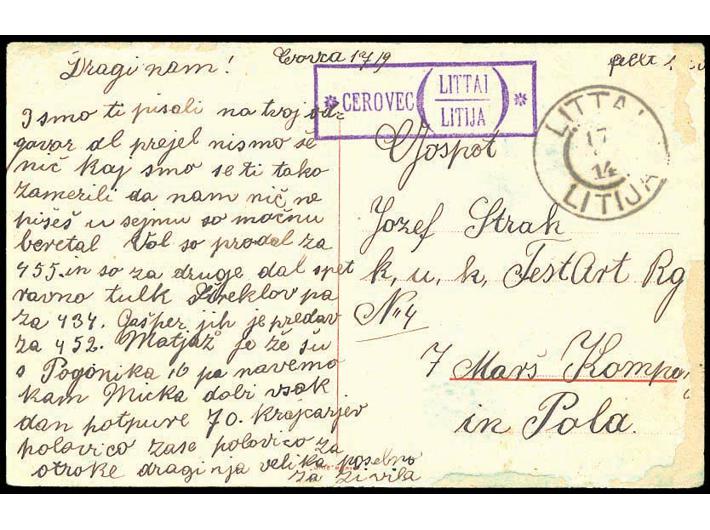 Dragi nam!
I smo ti pisali na tvoj od-
gavor dl prejel nismo še
nič kaj smo se ti tako
zamerili da nam nič ne
pišeš u sejmu so močnu
beretal Vol so prodal za
455. in so za druge dal spet
ravno tulk Štreklov pa
za 434. Gašper jih je predav
za 452. Matjaž je že šu
s Pogonika 16 pa navemo
kam Micka dobi vsak
dan potpure 70. krajcarjev
polavico zase polovico za
otroke draginja velika posebno
za živila
CEROVEC (LITTAI / LITIJA)
LITTAI
17
14
LITIJA
Gospot
Jozef Strah
k. u. k. FestArt Rg
No 4
7 Marš Kompa
in Pola.